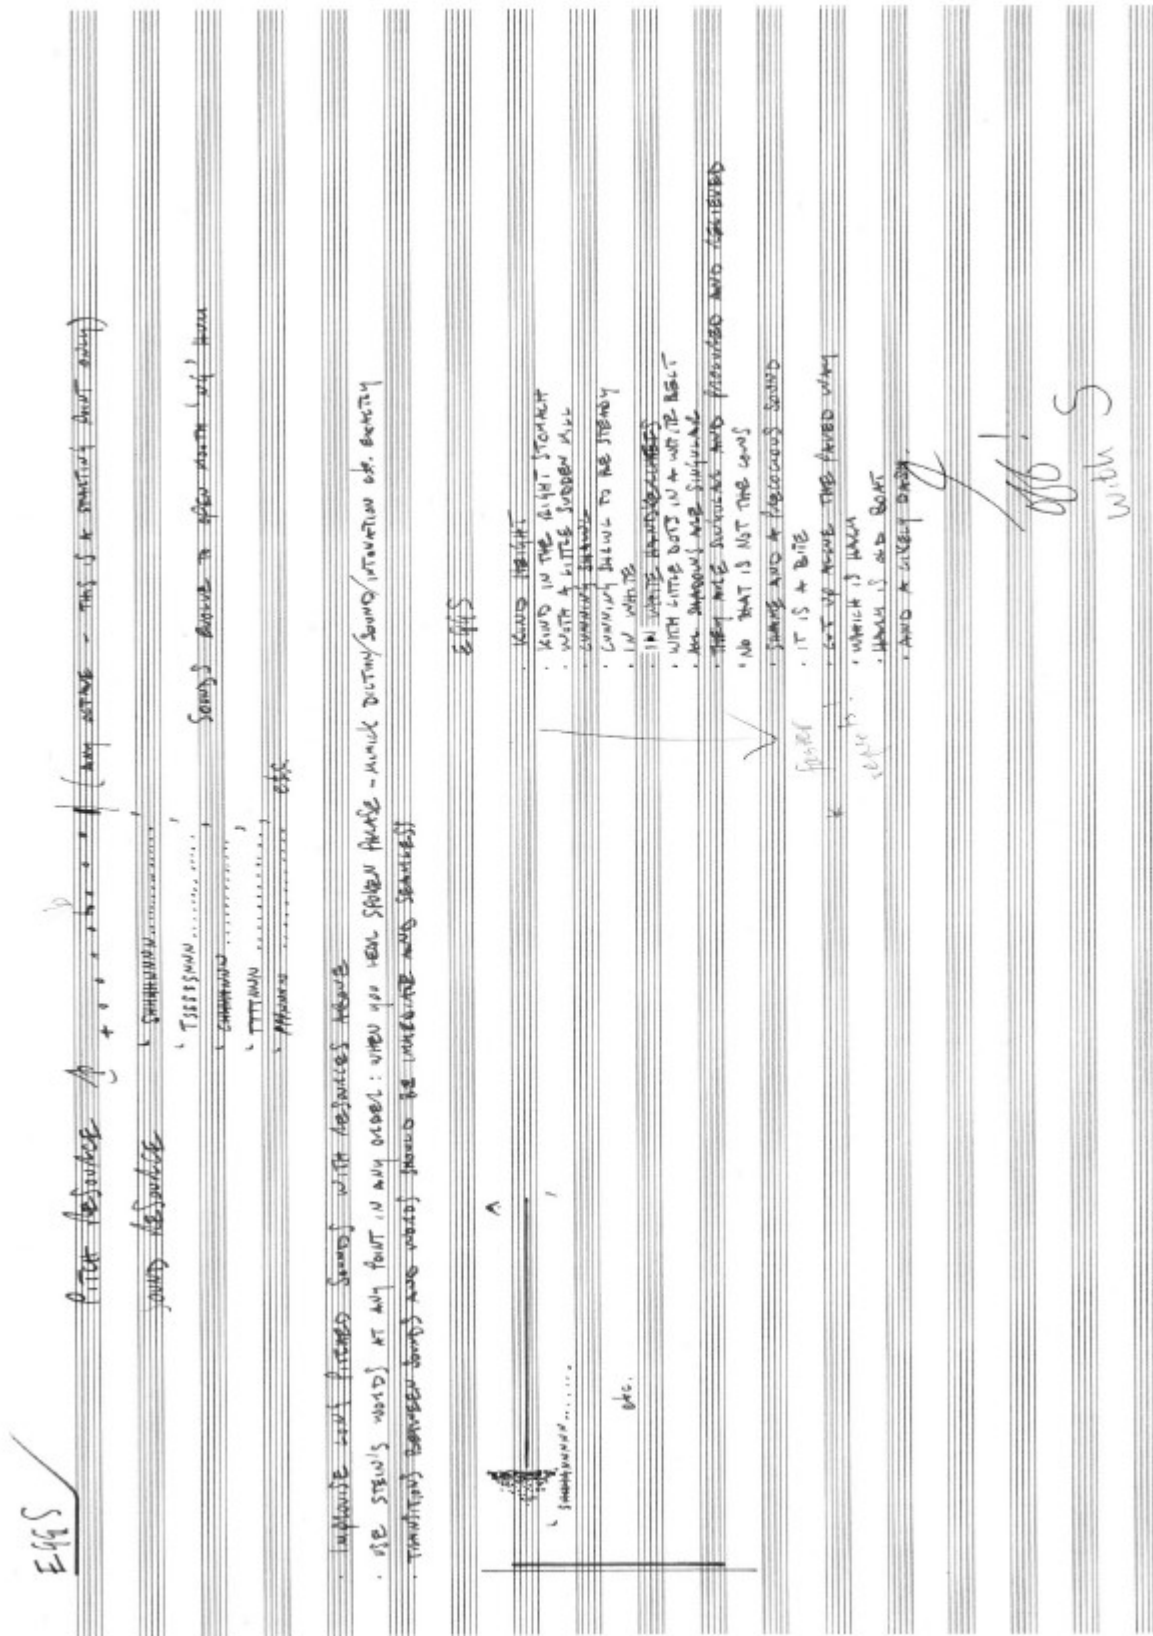 EGGS
PITCH RESOURCE (ANY OCTAVE - THIS IS A STARTING POINT ONLY)
SOUND RESOURCE 'SHHHHNNNN..............'
'TSSSSSNNN...........'
'CHHHHNNN............' SOUNDS EVOLVE TO OPEN MOUTH 'NG' HUM
'TTTTNNN .............'
'PPPNNNN ............' etc.
· IMPROVISE LONG PITCHED SOUNDS WITH RESOURCES ABOVE
· USE STEIN'S WORDS AT ANY POINT IN ANY ORDER: WHEN YOU HEAR SPOKEN PHRASE - MIMICK DICTION/SOUND/INTONATION EXACTLY
· TRANSITIONS BETWEEN SOUNDS AND WORDS SHOULD BE IMMEDIATE AND SEAMLESS
EGGS
'SHHHHNNNNN.......'
etc.
· KIND HEIGHT
· KIND IN THE RIGHT STOMACH
· WITH A LITTLE SUDDEN MILL
· CUNNING SHAWL
· CUNNING SHAWL TO BE STEADY
· IN WHITE
· IN WHITE HANDKERCHIEFS
· WITH LITTLE DOTS IN A WHITE BELT
· ALL SHADOWS ARE SINGULAR
· THEY ARE SINGULAR AND PROCURED AND RELIEVED
· NO THAT IS NOT THE COWS
· SHAME AND A PRECOCIOUS SOUND
· IT IS A BITE
· CUT UP ALONE THE PAVED WAY
· WHICH IS HARM
· HARM IS OLD BOAT
· AND A LIKELY DASH.
faster
with S